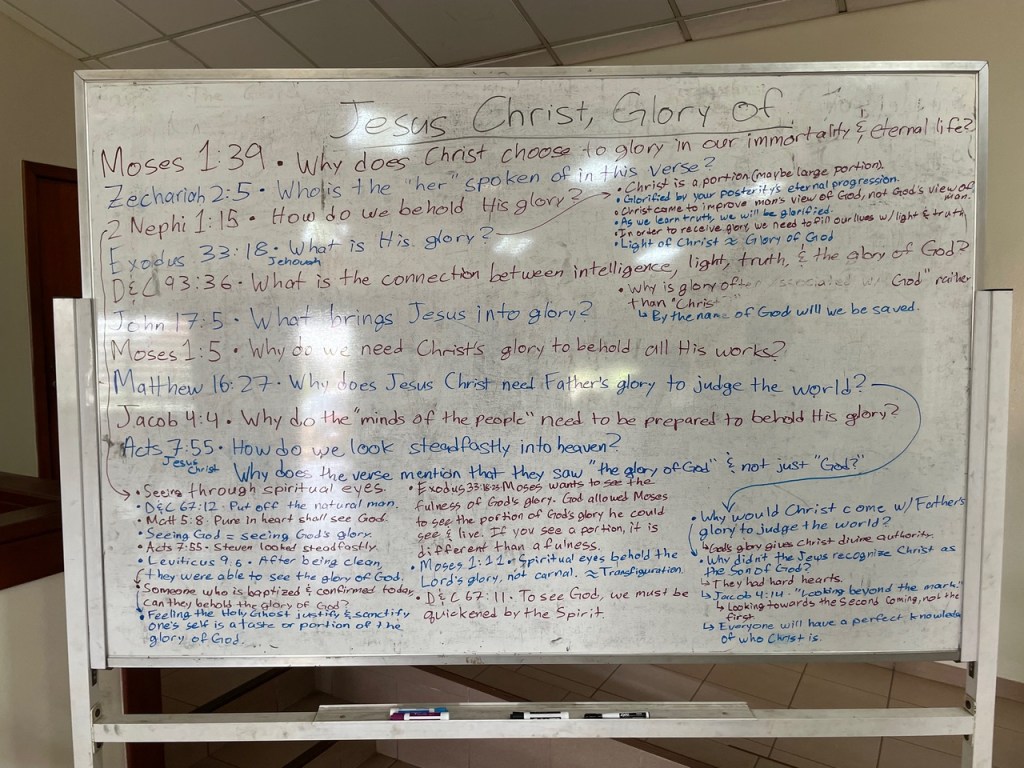 Jesus Christ, Glory of
Moses 1:39 • Why does Christ choose to glory in our immortality & eternal life?
Zechariah 2:5 • Who is the "her" spoken of in this verse?
2 Nephi 1:15 • How do we behold His glory?
Exodus 33:18 • What is His glory?
Jehovah
• Christ is a portion (maybe large portion).
• Glorified by your posterity's eternal progression.
• Christ came to improve man's view of God, not God's view of man.
• As we learn truth, we will be glorified.
• In order to receive glory, we need to fill our lives w/ light & truth.
• Light of Christ ≈ Glory of God
D&C 93:36 • What is the connection between intelligence, light, truth, & the glory of God?
• Why is glory often associated w/ "God" rather
than "Christ"?
↳ By the name of God will we be saved.
John 17:5 • What brings Jesus into glory?
Moses 1:5 • Why do we need Christ's glory to behold all His works?
Matthew 16:27 • Why does Jesus Christ need Father's glory to judge the world?
Jacob 4:4 • Why do the "minds of the people" need to be prepared to behold His glory?
Acts 7:55 • How do we look steadfastly into heaven?
Jesus Christ
Why does the verse mention that they saw "the glory of God" & not just "God?"
• Seeing through spiritual eyes.
• D&C 67:12 • Put off the natural man.
• Matt 5:8 • Pure in heart shall see God.
• Seeing God = seeing God's glory.
• Acts 7:55 • Steven looked steadfastly.
• Leviticus 9:6 • After being clean,
they were able to see the glory of God.
• Someone who is baptized & confirmed today,
can they behold the glory of God?
• Feeling the Holy Ghost justify & sanctify
one's self is a taste or portion of the
glory of God.
• Exodus 33:18-23 Moses wants to see the
fulness of God's glory. God allowed Moses
to see the portion of God's glory he could
see & live. If you see a portion, it is
different than a fulness.
• Moses 1:11 • Spiritual eyes behold the
Lord's glory, not carnal. ≈ Transfiguration.
• D&C 67:11 • To see God, we must be
quickened by the Spirit.
• Why would Christ come w/ Father's
glory to judge the world?
↳ God's glory gives Christ divine authority.
• Why didn't the Jews recognize Christ as
the Son of God?
↳ They had hard hearts.
↳ Jacob 4:14 • "Looking beyond the mark."
↳ Looking towards the Second Coming, not the
first.
↳ Everyone will have a perfect knowledge
of who Christ is.